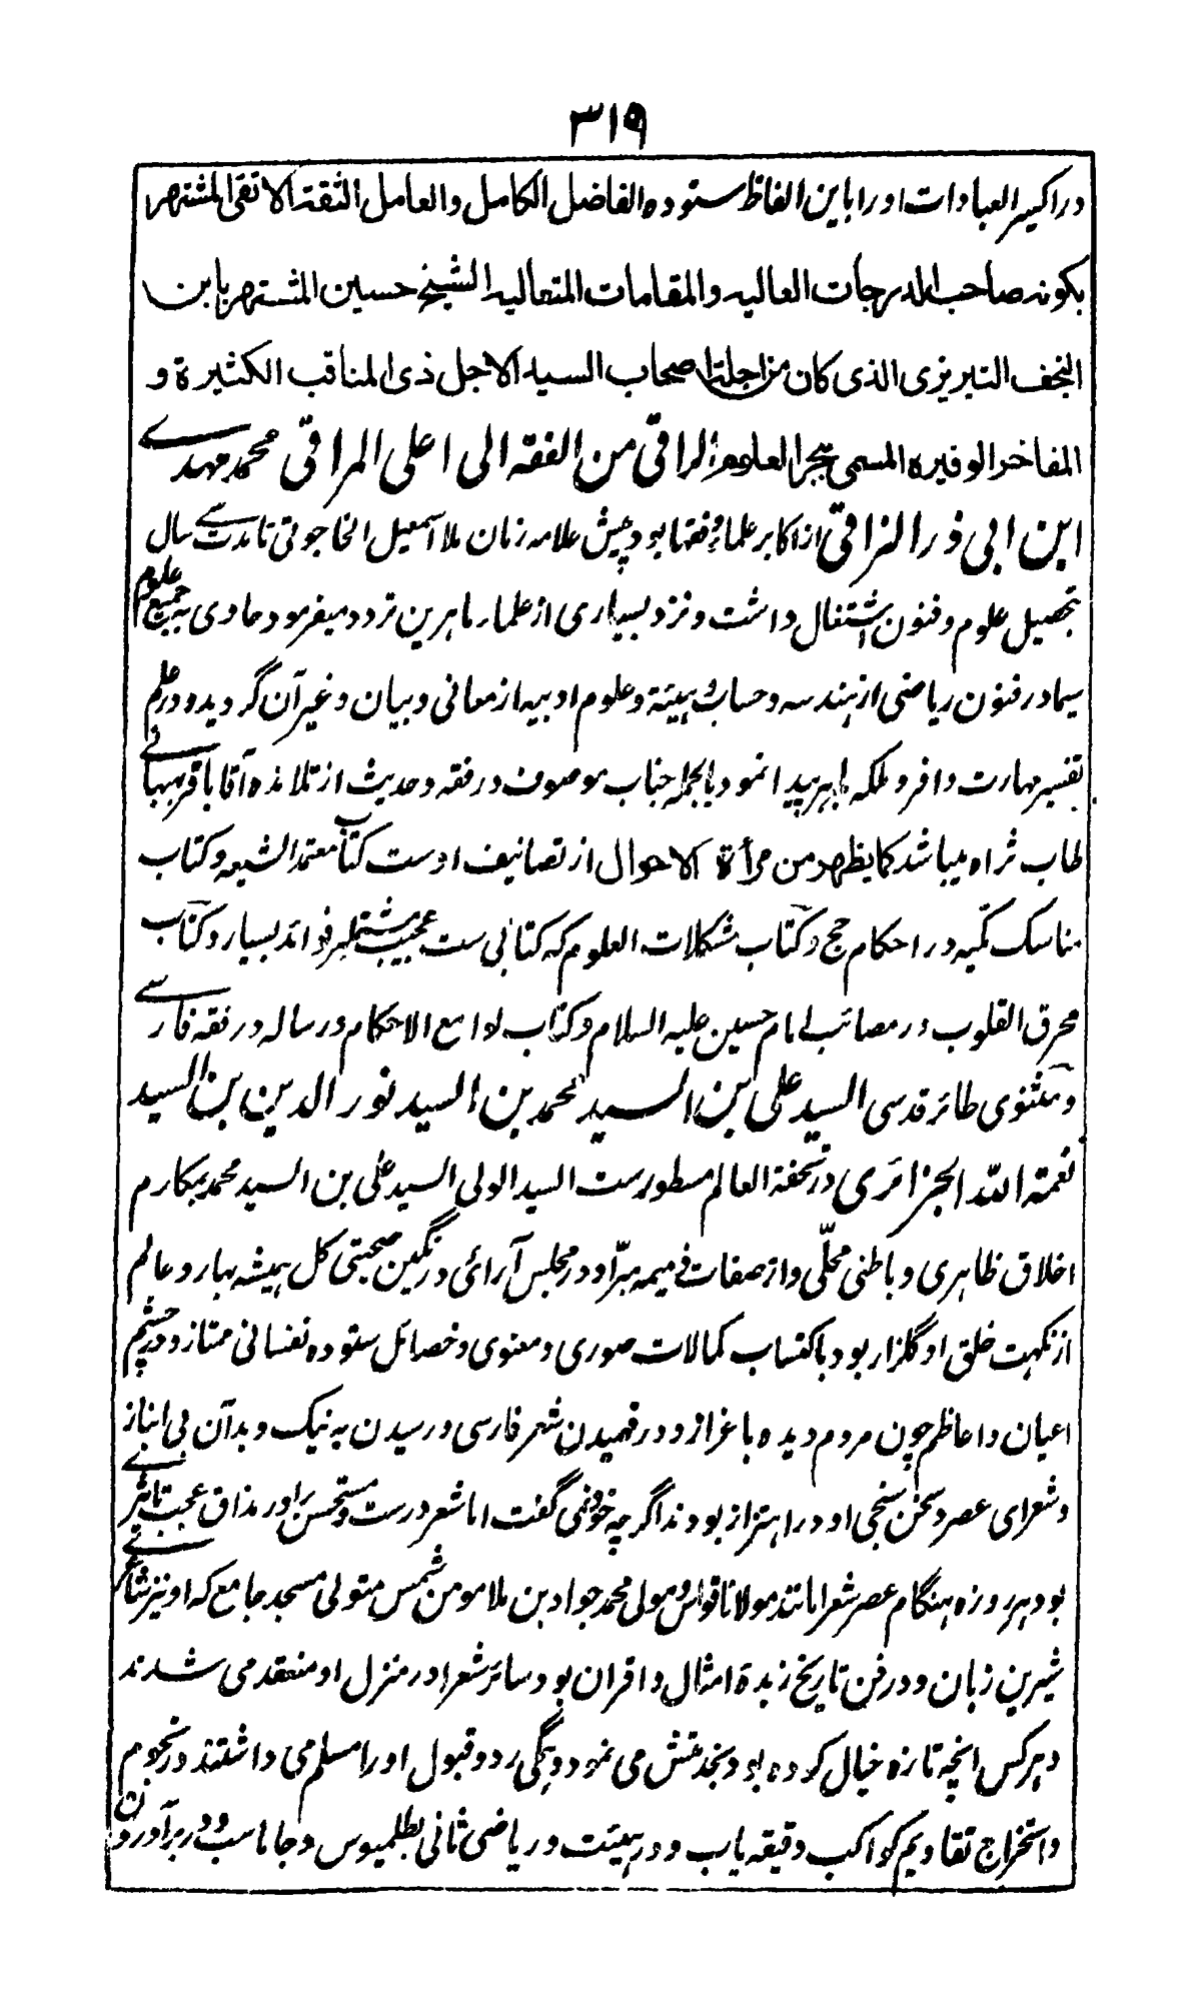 ٣١٩
در اکسیر العبادات او را باین الفاظ ستوده الفاضل الکامل والعامل الثقة الاتقی المشتهر
بکونه صاحب الدرجات العالیه والمقامات المتعالیه الشیخ حسین المشتهر بابن
النجف التبریزی الذی کان من اجلة اصحاب السید الاجل ذی المناقب الکثیرة و
المفاخر الوفیره المسمی ببحر العلوم الراقی من الفقه الی اعلی المراقی محمد مهدی
ابن ابی ذر النراقی از اکابر علما و فقها بود پیش علامه زمان ملا اسمعیل الخاجوئی تا مدت سی سال
بتحصیل علوم و فنون اشتغال داشت و نزد بسیاری از علماء ماهرین تردد میفرمود حاوی به جمیع علوم
سیما در فنون ریاضی از هندسه و حساب و هیئة و علوم ادبیه از معانی و بیان و غیر آن گردیده و در علم
تفسیر مهارت وافر و ملکه باهر پیدا نمود بالجمله جناب موصوف در فقه و حدیث از تلامذه آقا باقر بهبهانی
طاب ثراه میباشد کما یظهر من مرأة الاحوال از تصانیف اوست کتاب معتمد الشیعه و کتاب
مناسک مکیه در احکام حج و کتاب مشکلات العلوم که کتابی ست عجیب مشتملبر فوائد بسیار و کتاب
محرق القلوب در مصائب امام حسین علیه السلام و کتاب لوامع الاحکام و رساله در فقه فارسی
و مثنوی طائر قدسی السید علی بن السید محمد بن السید نور الدین بن السید
نعمة الله الجزائری در تحفة العالم مسطورست السید الولی السید علی بن السید محمد بمکارم
اخلاق ظاهری و باطنی محلّی و از صفات ذمیمه مبرّا و در مجلس آرائی و رنگین صحبتی گل همیشه بهار و عالم
از نکهت خلق او گلزار بود باکتساب کمالات صوری و معنوی و خصائل ستوده نفسانی ممتاز و در چشم
اعیان و اعاظم چون مردم دیده باعزاز و در فهمیدن شعر فارسی و رسیدن به نیک و بد آن بی انباز
و شعرای عصر و سخن سنجی او در اهتزاز بودند اگرچه خود نمی گفت اما شعر درست و مستحسن را در مذاق عجب تاثیری
بود هر روزه هنگام عصر شعرا مانند مولانا قواس و مولی محمد جواد بن ملا مومن شمس متولی مسجد جامع که او نیز شاعری
شیرین زبان و در فن تاریخ زبدة امثال و اقران بود سائر شعرا در منزل او منعقد می شدند
و هر کس انچه تازه خیال کرده بود بخدمتش می نمود و همگی رد و قبول او را مسلم می داشتند در نجوم
و استخراج تقاویم کواکب دقیقه یاب و در هیئت و ریاضی ثانی بطلمیوس و جاماسب و در برآوردن